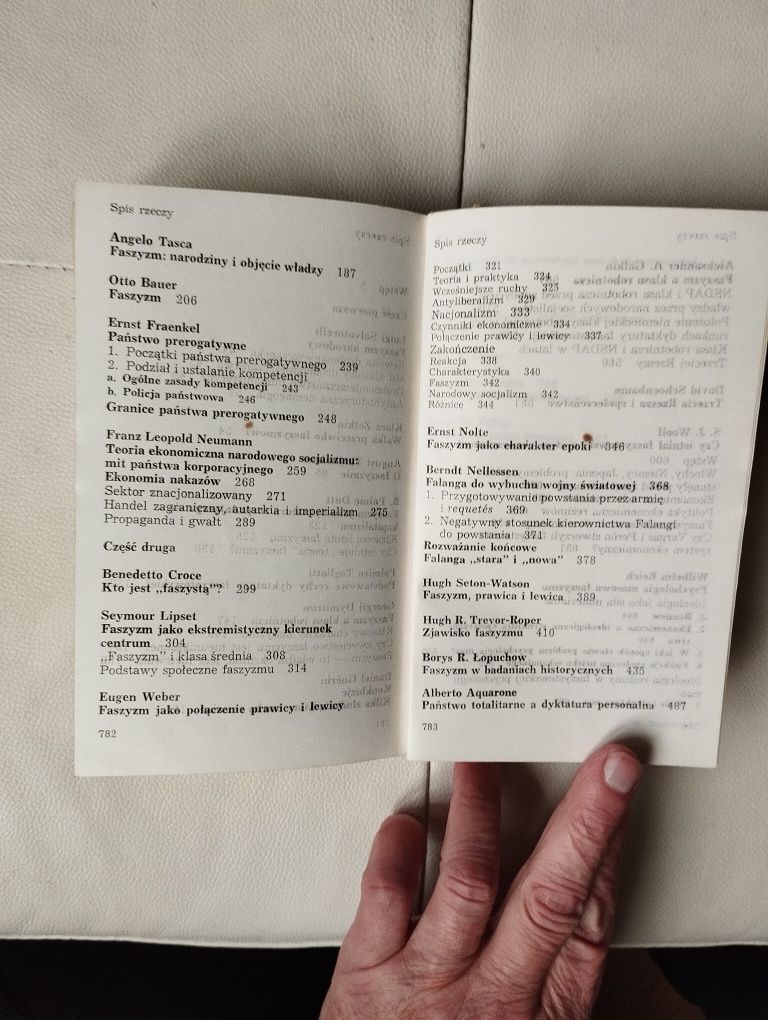 Spis rzeczy
Angelo Tasca
Faszyzm: narodziny i objęcie władzy 187
Otto Bauer
Faszyzm 206
Ernst Fraenkel
Państwo prerogatywne
1. Początki państwa prerogatywnego 239
2. Podział i ustalanie kompetencji
a. Ogólne zasady kompetencji 243
b. Policja państwowa 246
Granice państwa prerogatywnego 248
Franz Leopold Neumann
Teoria ekonomiczna narodowego socjalizmu:
mit państwa korporacyjnego 259
Ekonomia nakazów 268
Sektor znacjonalizowany 271
Handel zagraniczny, autarkia i imperializm 275
Propaganda i gwałt 289
Część druga
Benedetto Croce
Kto jest „faszystą"? 299
Seymour Lipset
Faszyzm jako ekstremistyczny kierunek
centrum 304
„Faszyzm" i klasa średnia 308
Podstawy społeczne faszyzmu 314
Eugen Weber
Faszyzm jako połączenie prawicy i lewicy
782
Spis rzeczy
Początki 321
Teoria i praktyka 324
Wcześniejsze ruchy 325
Antyliberalizm 329
Nacjonalizm 333
Czynniki ekonomiczne 334
Połączenie prawicy i lewicy 337
Zakończenie
Reakcja 338
Charakterystyka 340
Faszyzm 342
Narodowy socjalizm 342
Różnice 344
Ernst Nolte
Faszyzm jako charakter epoki 346
Berndt Nellessen
Falanga do wybuchu wojny światowej 368
1. Przygotowywanie powstania przez armię
i requetés 369
2. Negatywny stosunek kierownictwa Falangi
do powstania 371
Rozważanie końcowe
Falanga „stara" i „nowa" 378
Hugh Seton-Watson
Faszyzm, prawica i lewica 389
Hugh R. Trevor-Roper
Zjawisko faszyzmu 410
Borys R. Łopuchow
Faszyzm w badaniach historycznych 435
Alberto Aquarone
Państwo totalitarne a dyktatura personalna 487
783